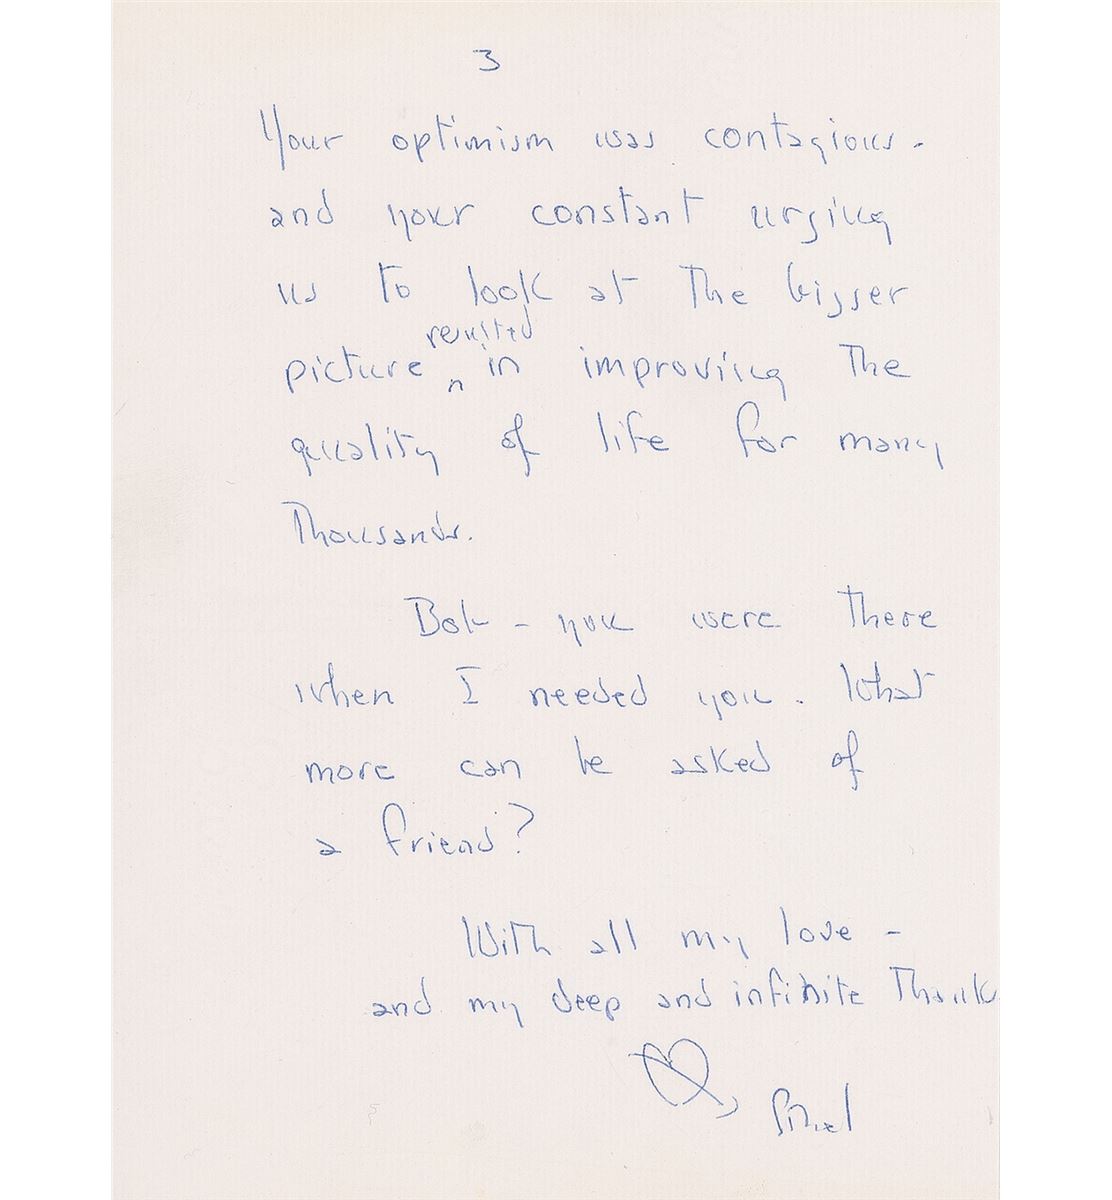 3
Your optimism was contagious -
and your constant urging
us to look at The bigger
resulted
picture ^ in improving The
quality of life for many
Thousands.
Bob - you were There
when I needed you. What
more can be asked of
a friend?
With all my love -
and my deep and infinite Thanks